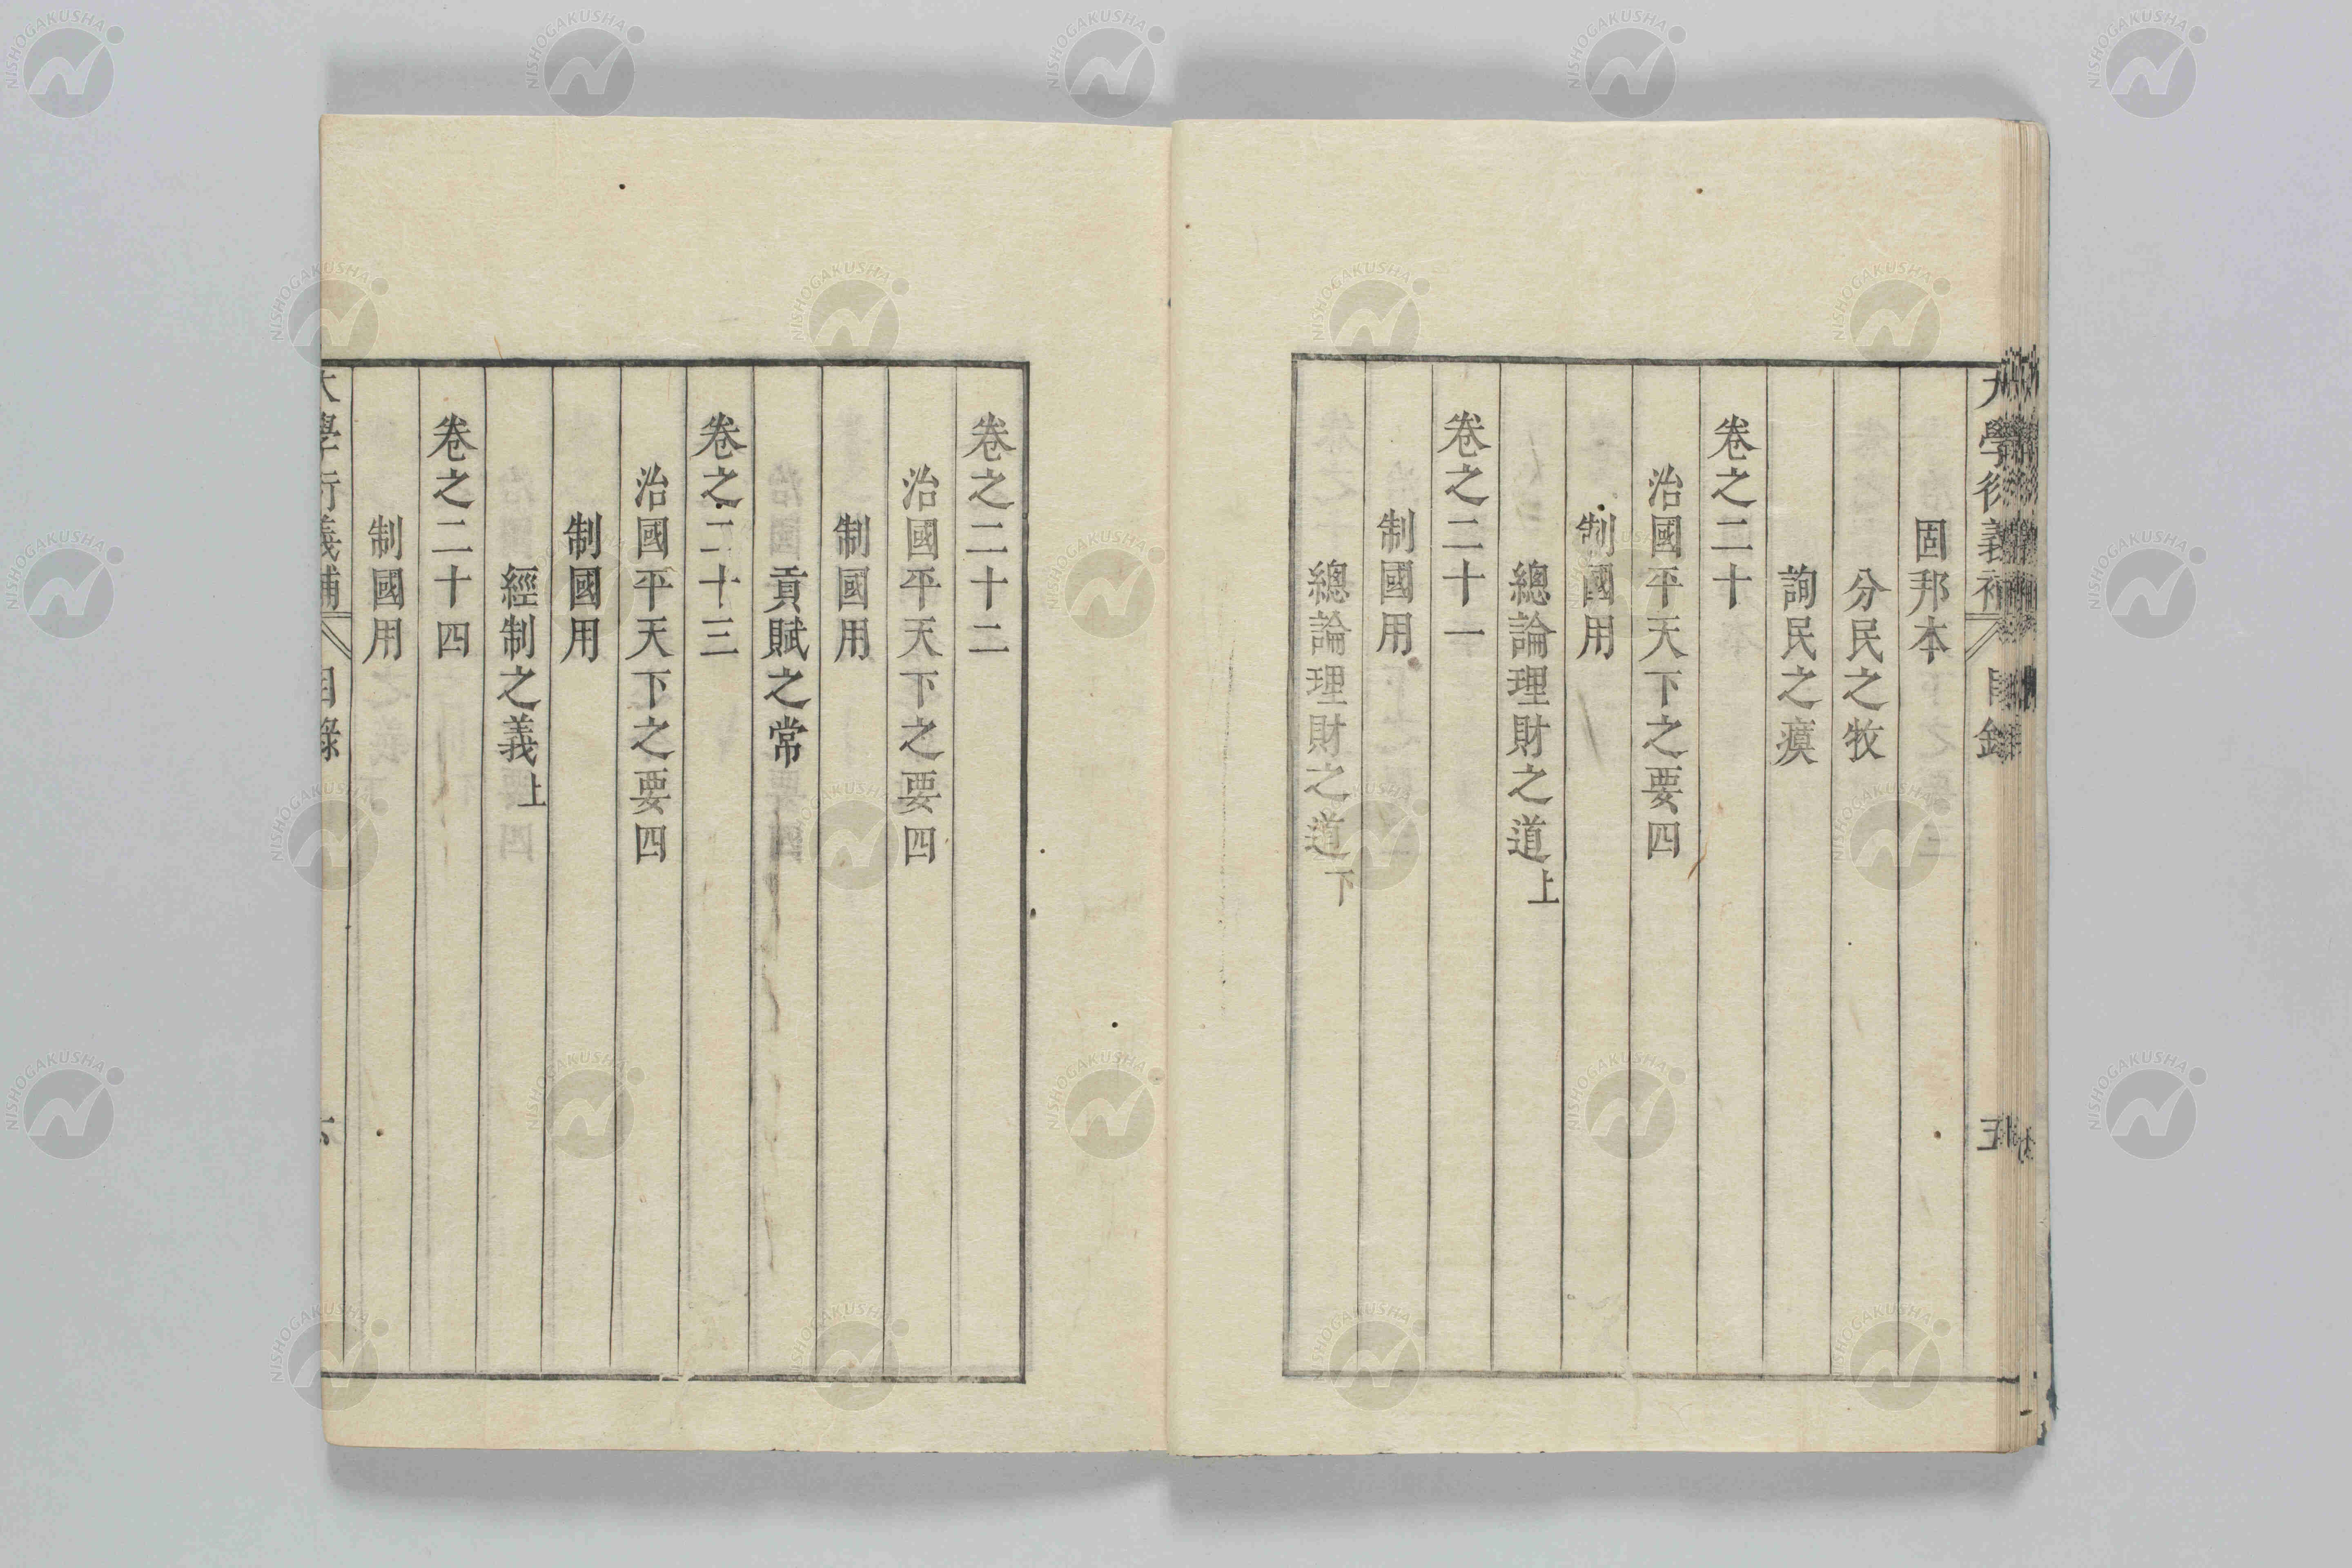 大學衍義補 目錄 五
固邦本
分民之牧
詢民之瘼
卷之二十
治國平天下之要四
制國用
總論理財之道上
卷之二十一
制國用
總論理財之道下
卷之二十二
治國平天下之要四
制國用
貢賦之常
卷之二十三
治國平天下之要四
制國用
經制之義上
卷之二十四
制國用
大學衍義補 目錄
NISHOGAKUSHA